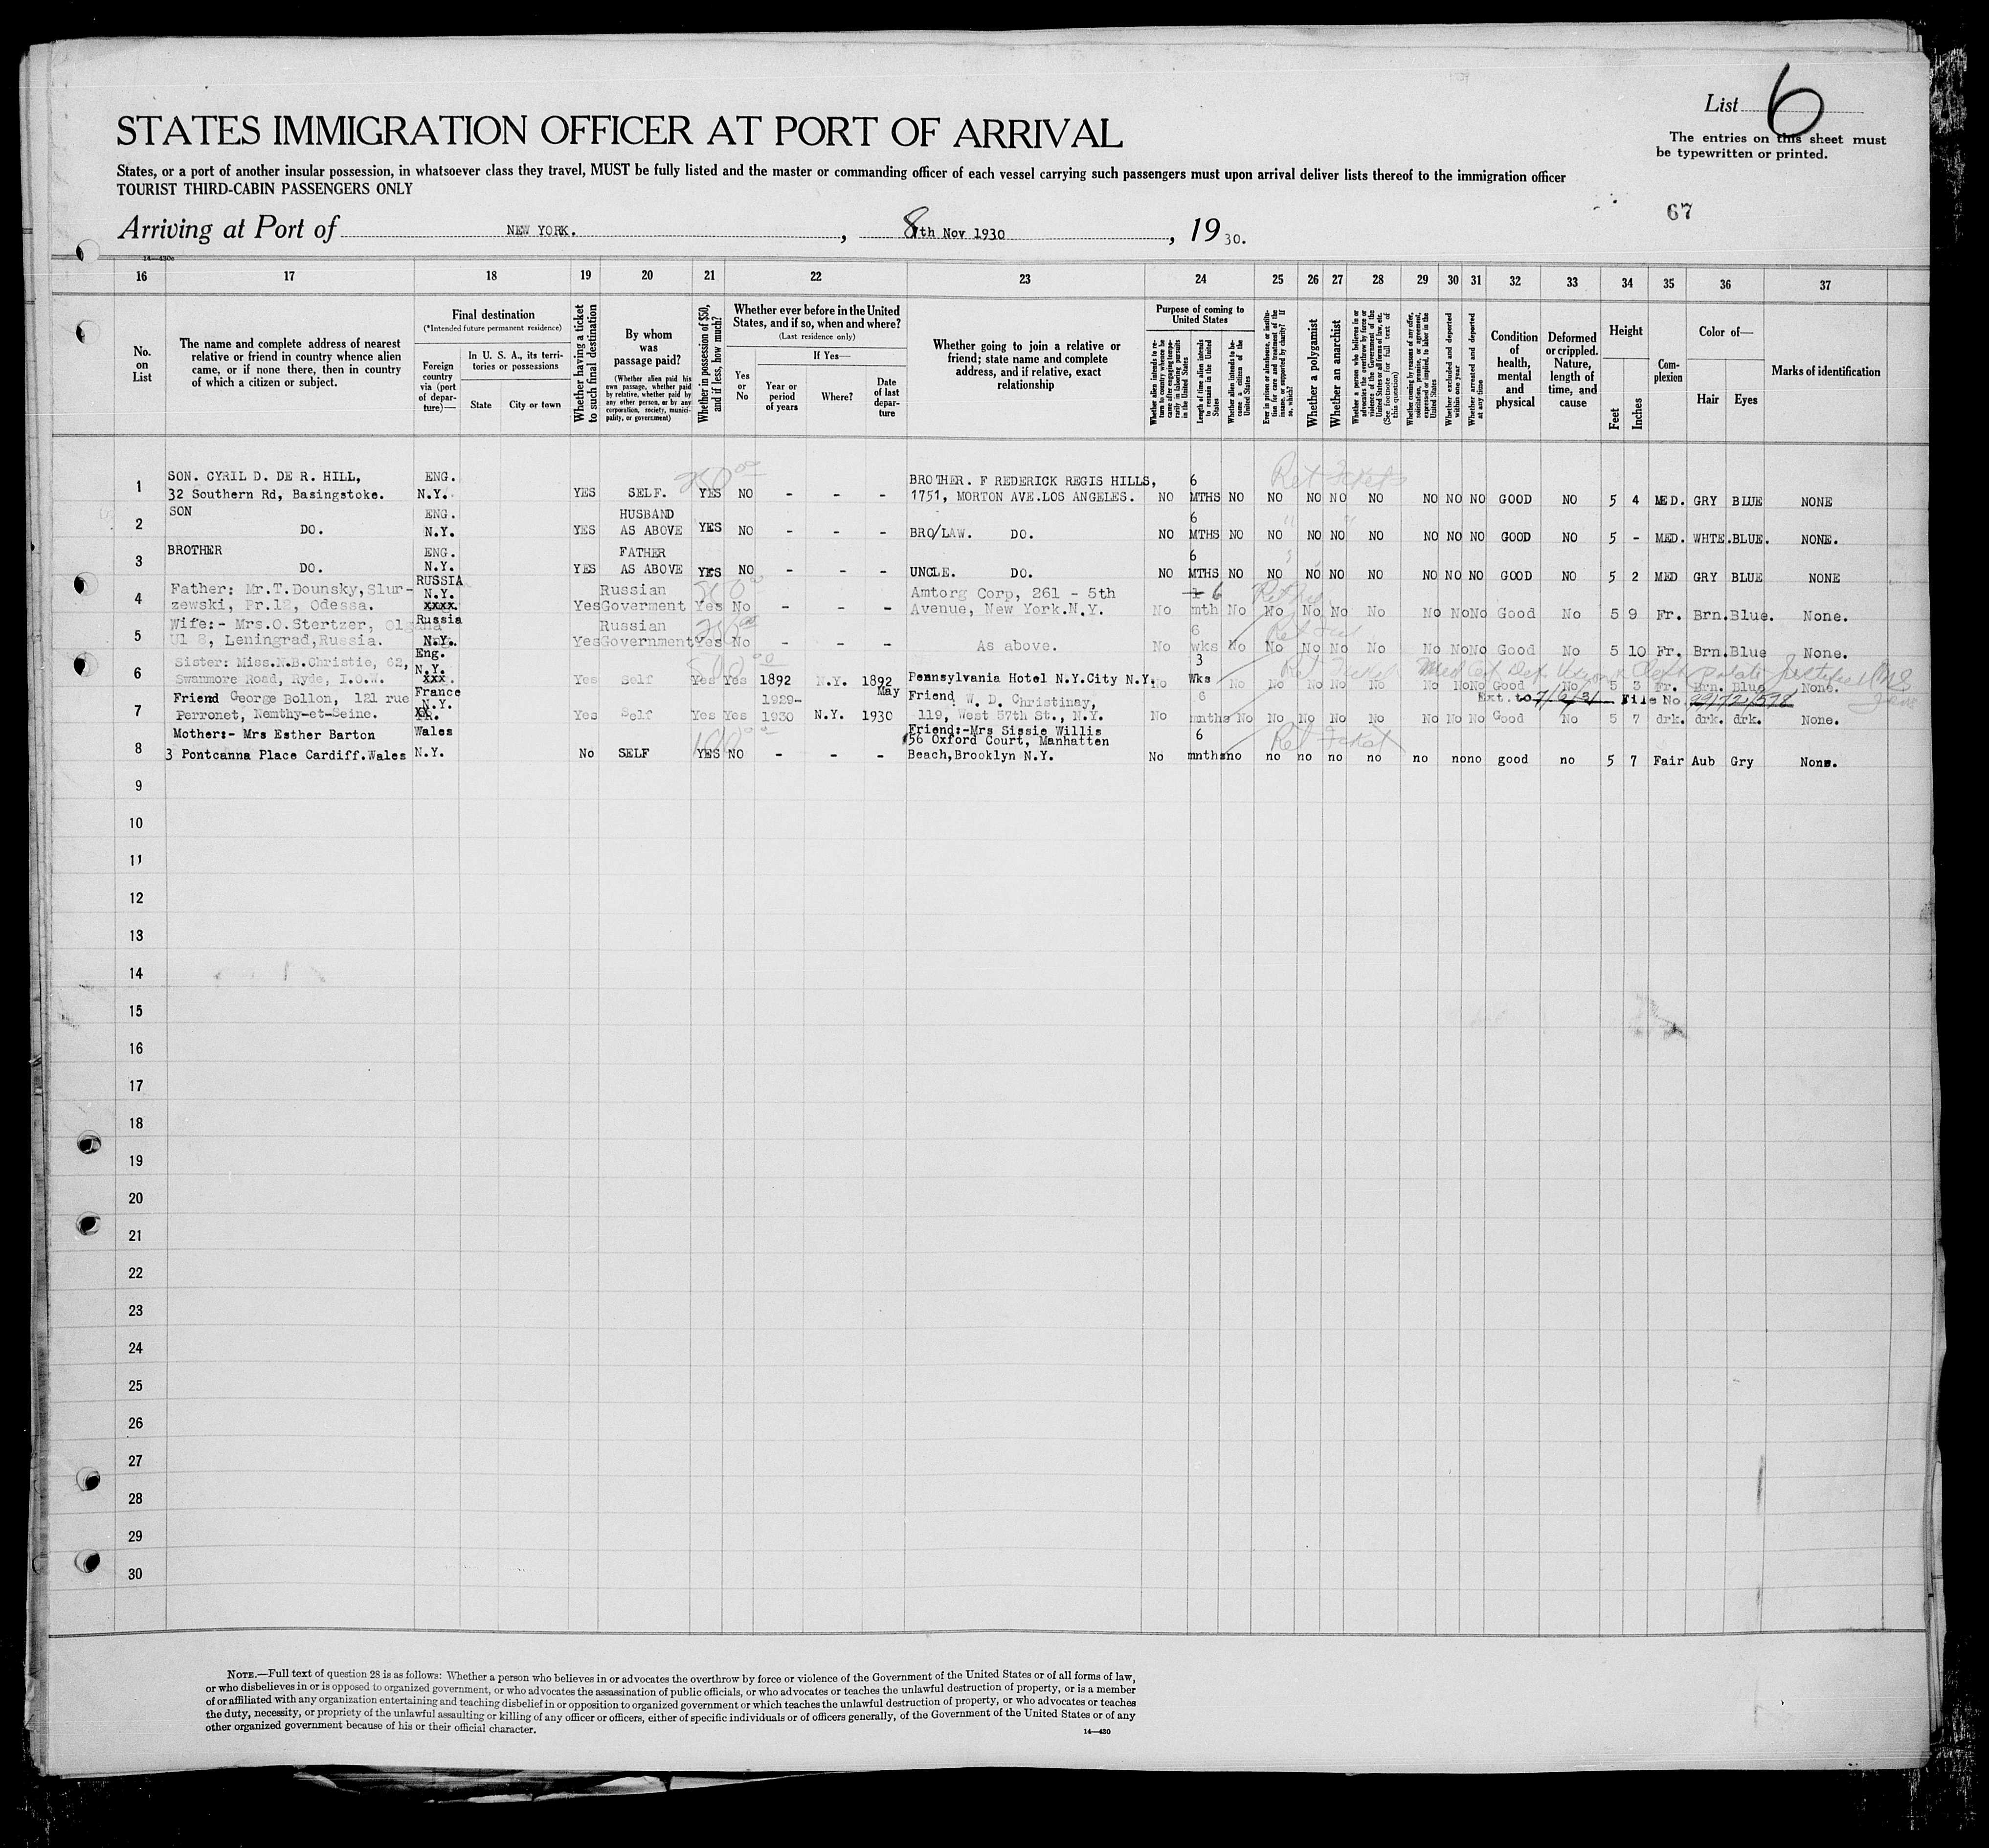 List 6
The entries on this sheet must
be typewritten or printed.
STATES IMMIGRATION OFFICER AT PORT OF ARRIVAL
States, or a port of another insular possession, in whatsoever class they travel, MUST be fully listed and the master or commanding officer of each vessel carrying such passengers must upon arrival deliver lists thereof to the immigration officer
TOURIST THIRD-CABIN PASSENGERS ONLY
67
Arriving at Port of NEW YORK. , 8th Nov 1930 , 19 30.
16 17 18 19 20 21 22 23 24 25 26 27 28 29 30 31 32 33 34 35 36 37
No. on List
The name and complete address of nearest relative or friend in country whence alien came, or if none there, then in country of which a citizen or subject.
Final destination
(*Intended future permanent residence)
Foreign country via (port of departure)—
In U. S. A., its territories or possessions
State City or town
Whether having a ticket to such final destination
By whom was passage paid?
(Whether alien paid his own passage, whether paid by relative, whether paid by any other person, or by any corporation, society, municipality, or government)
Whether in possession of $50, and if less, how much?
Whether ever before in the United States, and if so, when and where?
(Last residence only)
Yes or No
If Yes—
Year or period of years
Where?
Date of last departure
Whether going to join a relative or friend; state name and complete address, and if relative, exact relationship
Purpose of coming to United States
Whether alien intends to return to country whence he came after engaging temporarily in laboring pursuits in the United States
Length of time alien intends to remain in the United States
Whether alien intends to become a citizen of the United States
Ever in prison or almshouse, or institution for care and treatment of the insane, or supported by charity? If so, which?
Whether a polygamist
Whether an anarchist
Whether a person who believes in or advocates the overthrow by force or violence of the Government of the United States or all forms of law, etc. (See footnote for full text of this question)
Whether coming by reason of any offer, solicitation, promise, or agreement, expressed or implied, to labor in the United States
Whether excluded and deported within one year
Whether arrested and deported at any time
Condition of health, mental and physical
Deformed or crippled. Nature, length of time, and cause
Height
Feet Inches
Complexion
Color of—
Hair Eyes
Marks of identification
250 00 Ret Tickets
SON. CYRIL D. DE R. HILL, ENG. BROTHER. F REDERICK REGIS HILLS, 6
1 32 Southern Rd, Basingstoke. N.Y. YES SELF. YES NO - - - 1751, MORTON AVE.LOS ANGELES. NO MTHS NO NO NO NO NO NO NO NO GOOD NO 5 4 MED. GRY BLUE NONE
SON ENG. HUSBAND 6
2 DO. N.Y. YES AS ABOVE YES NO - - - BRO/LAW. DO. NO MTHS NO NO NO NO NO NO NO NO GOOD NO 5 - MED. WHTE.BLUE. NONE.
BROTHER ENG. FATHER 6
3 DO. N.Y. YES AS ABOVE YES NO - - - UNCLE. DO. NO MTHS NO NO NO NO NO NO NO NO GOOD NO 5 2 MED GRY BLUE NONE
RUSSIA
Father: Mr.T.Dounsky,Slur- N.Y. Russian Amtorg Corp, 261 - 5th 6
4 zewski, Pr.12, Odessa. xxxx. Yes Goverment Yes No - - - Avenue, New York.N.Y. No mth No No No No No No No No Good No 5 9 Fr. Brn.Blue. None.
Wife:- Mrs.O.Stertzer, Russia Russian 6
5 Ul 8, Leningrad,Russia. N.Y. Yes Government Yes No - - - As above. No wks No No No No No No No No Good No 5 10 Fr. Brn.Blue None.
Eng. 500 00 3 Ret Ticket
Sister: Miss.N.B.Christie, 62, N.Y.
6 Swanmore Road, Ryde, I.O.W. xxx. Yes Self Yes Yes 1892 N.Y. 1892 Pennsylvania Hotel N.Y.City N.Y. No Wks No No No No No No No No Good No 5 3 Fr. Brn. Blue None.
Ext. to 7/6/31 File No.
Friend George Bollon, 121 rue France N.Y. 1929- May Friend W. D. Christinay, 6
7 Perronet, Nemthy-et-Seine. Yes Self Yes Yes 1930 N.Y. 1930 119, West 57th St., N.Y. No mnths No No No No No No No No Good No 5 7 drk. drk. drk. None.
Mother:- Mrs Esther Barton Wales 100 00 Friend:-Mrs Sissie Willis 6 Ret Ticket
56 Oxford Court, Manhatten
8 3 Pontcanna Place Cardiff.Wales N.Y. No SELF YES NO - - - Beach,Brooklyn N.Y. No mnths no no no no no no no no good no 5 7 Fair Aub Gry None.
9
10
11
12
13
14
15
16
17
18
19
20
21
22
23
24
25
26
27
28
29
30
NOTE.—Full text of question 28 is as follows: Whether a person who believes in or advocates the overthrow by force or violence of the Government of the United States or of all forms of law,
or who disbelieves in or is opposed to organized government, or who advocates the assassination of public officials, or who advocates or teaches the unlawful destruction of property, or is a member
of or affiliated with any organization entertaining and teaching disbelief in or opposition to organized government or which teaches the unlawful destruction of property, or who advocates or teaches
the duty, necessity, or propriety of the unlawful assaulting or killing of any officer or officers, either of specific individuals or of officers generally, of the Government of the United States or of any
other organized government because of his or their official character.
14—430